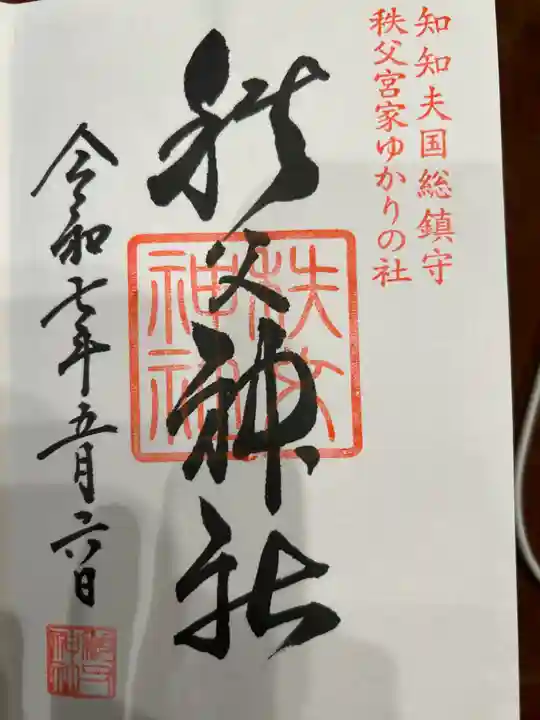 知知夫国総鎮守
秩父宮家ゆかりの社
秩父神社
秩父
神社
令和七年五月六日